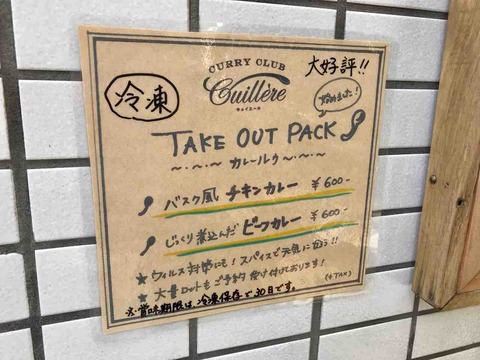 冷凍
CURRY CLUB
Cuillère
キュイエール
大好評!!
始めました!
TAKE OUT PACK
カレールゥ
バスク風 チキンカレー ¥600-
じっくり煮込んだ ビーフカレー ¥600-
★ ウィルス対策にも!スパイスで元気に白う!!
★ 大量ロットもご予約受け付けております!
(+TAX)
※賞味期限は、冷凍保存で30日です。